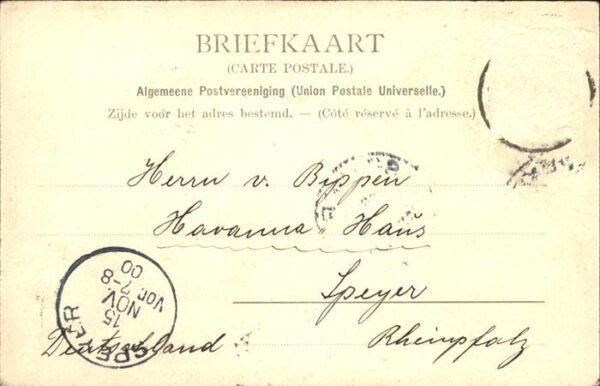 BRIEFKAART
(CARTE POSTALE.)
Algemeene Postvereeniging (Union Postale Universelle.)
Zijde voor het adres bestemd. — (Côté réservé à l'adresse.)
Herrn v. Bippen
Havanna Haus
Speyer
Deutschland Rheinpfalz
SPEYER
15
NOV.
Vor. 7-8
00